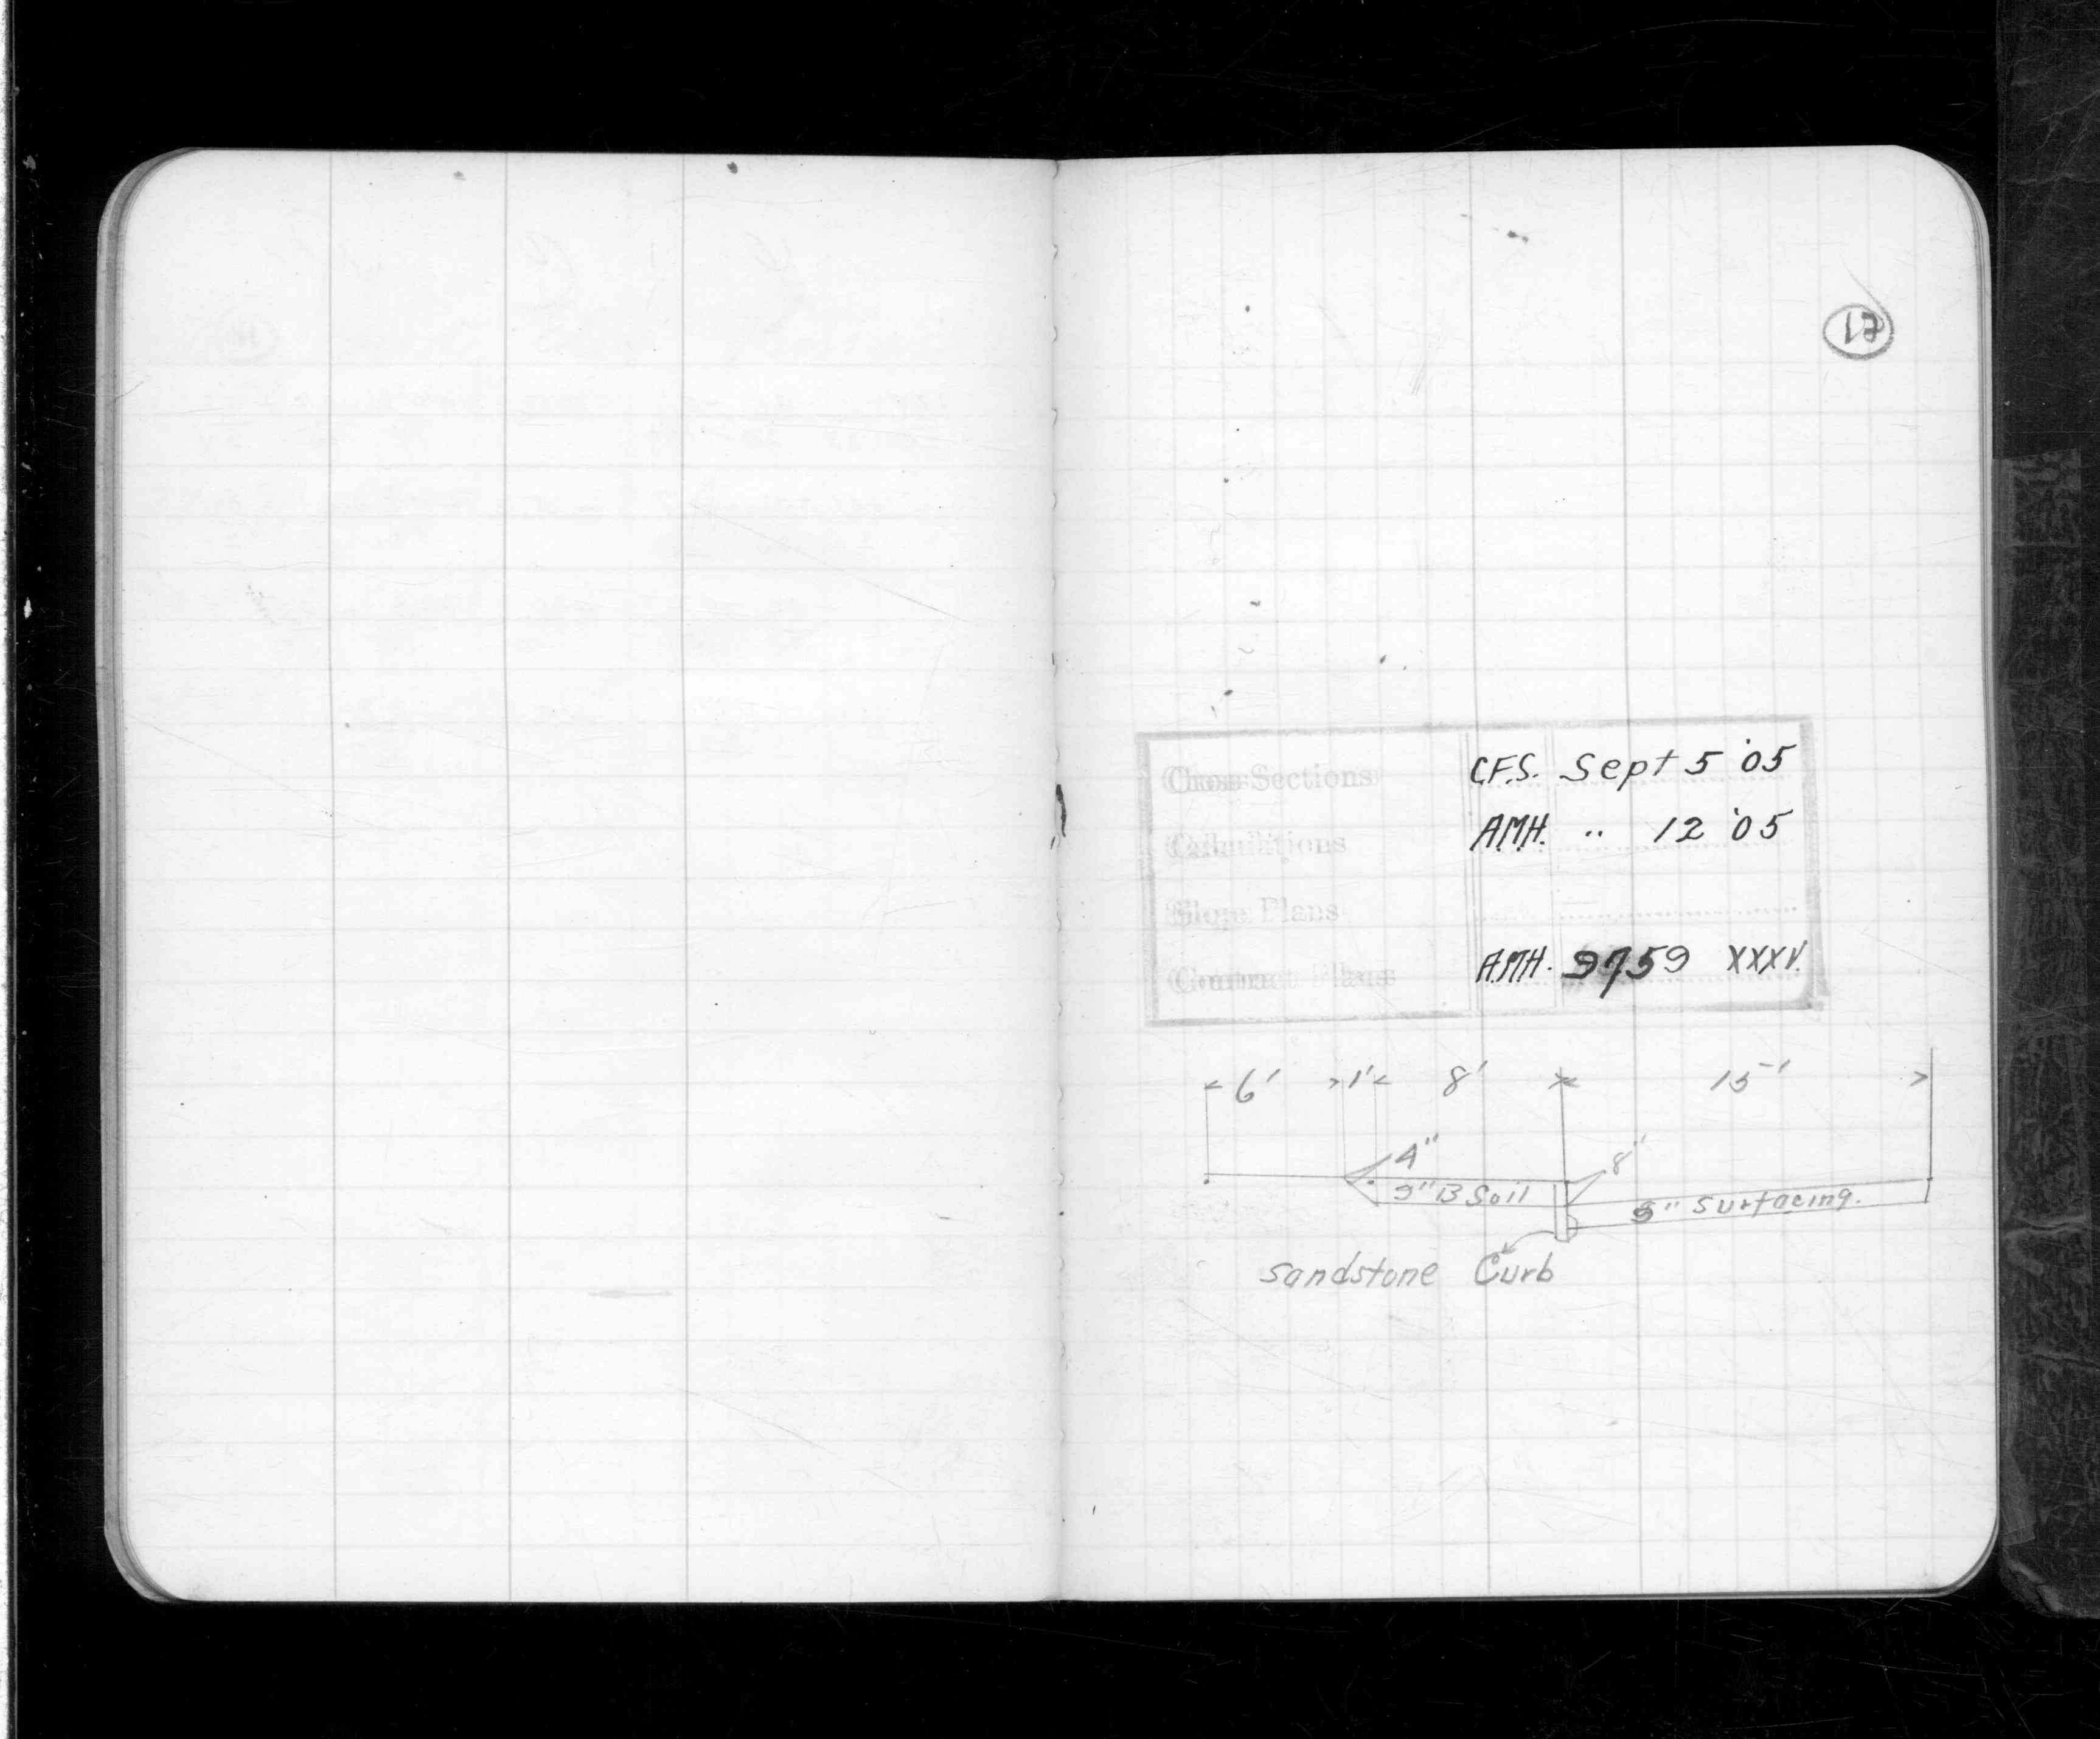 Cross Sections C.F.S. Sept 5 '05
Calculations A.M.H. " 12 '05
Slope Plans
Contract Plans A.M.H. 9759 XXXV.
6' 1' 8' 15'
4" 8"
9" B Soil
" Surfacing.
Sandstone Curb